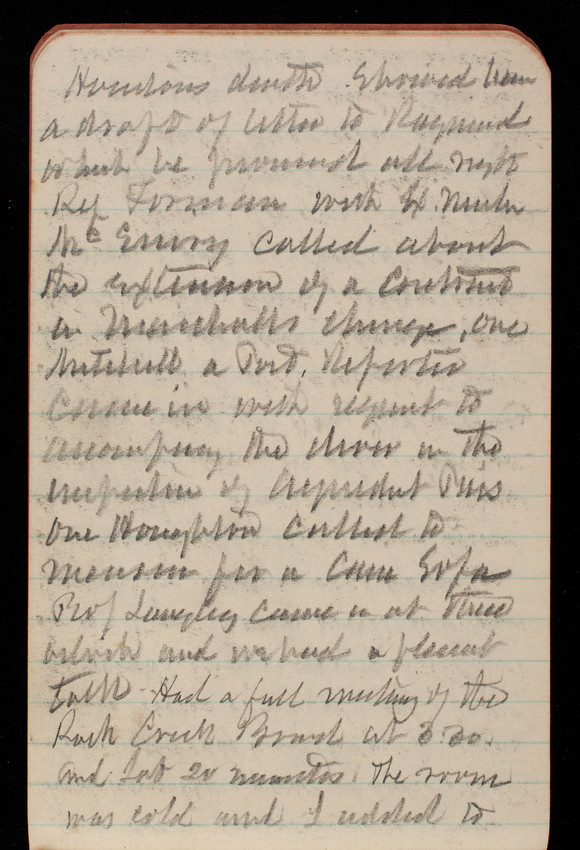 Houstons death Showed him
a draft of letter to Raymond
which he pronounced all right
Rep Forman with Ex Memb
Mc Emory called about
the extension of a Contract
in Marshalls charge, one
Mitchell a Post, Reporter
Came in with request to
accompany the diver in the
inspection of Aqueduct Pier
one Houghton called to
measure for a Cane Sofa
Prof Langley came in at three
oclock and we had a pleasant
talk Had a full meeting of the
Rock Creek Board at 3 30.
and sat 20 minutes. The room
was cold and I added to